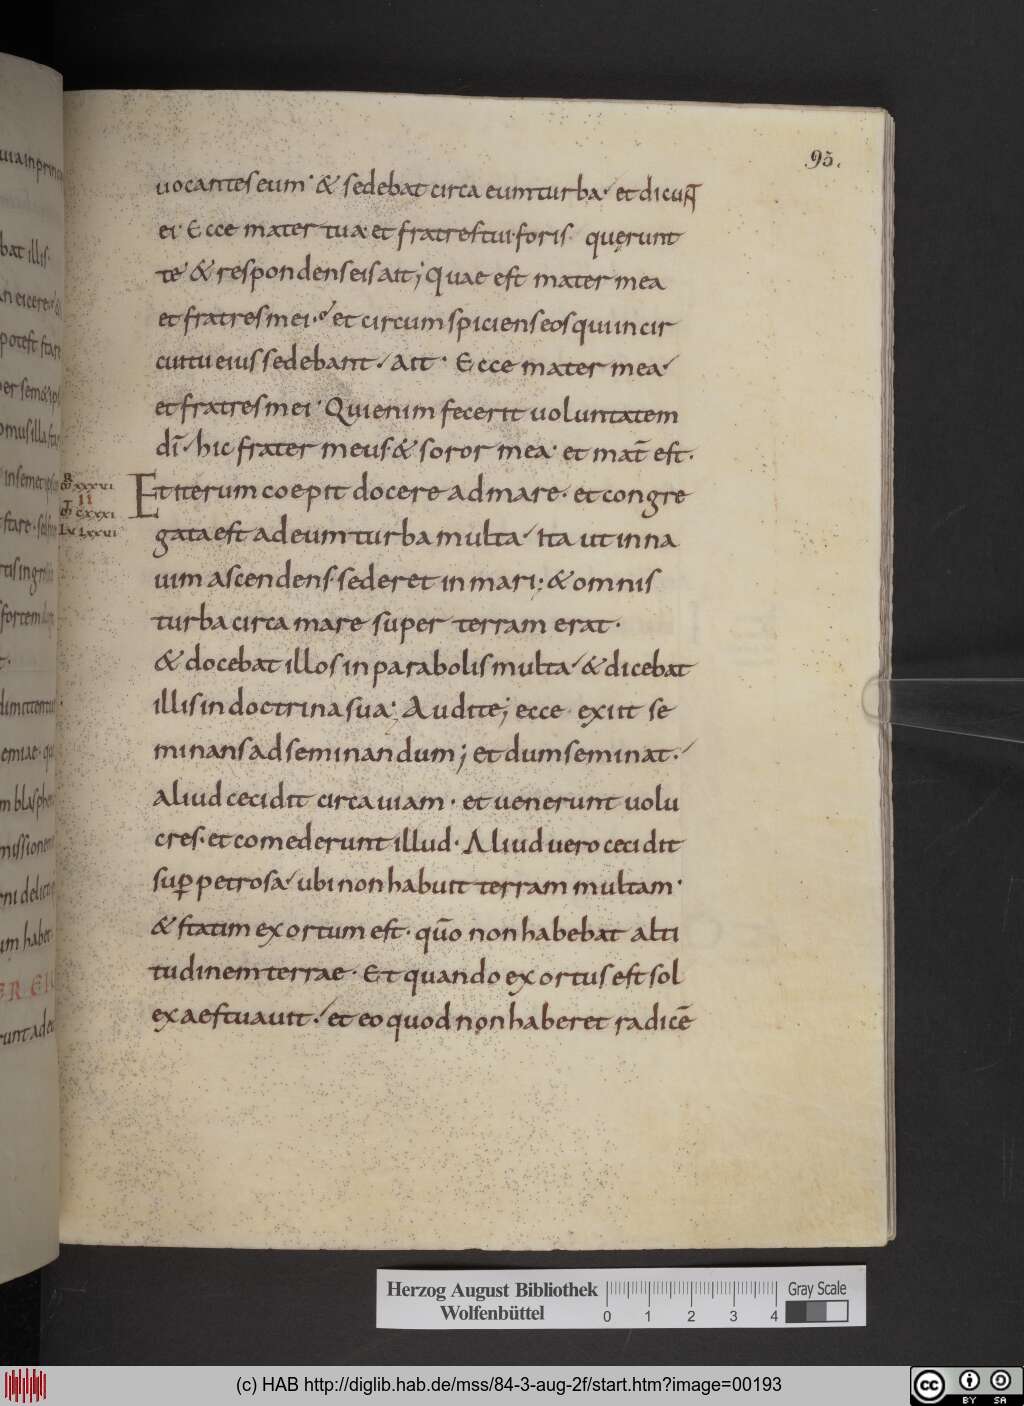 95.
uocantes eum · & sedebat circa eum turba · et dicuɴᴛ
ei · Ecce mater tua et fratres tui · foris quęrunt
te · & respondens eis ait ; Quae est mater mea
et fratres mei · et circumspiciens eos qui in cir
cuitu eius sedebant · Ait · Ecce mater mea
et fratres mei · Qui enim fecerit uoluntatem
dī · hic frater meus · & soror mea · et mat̄ est ·
Et iterum coepit docere ad mare · et congre
gata est ad eum turba multa · Ita ut in na
uim ascendens · sederet in mari ; & omnis
turba circa mare super terram erat ·
& docebat illos in parabolis multa · & dicebat
illis in doctrina sua · Audite ; ecce exiit se
minans ad seminandum ; et dum seminat ·
aliud cecidit circa uiam · et uenerunt uolu
cres · et comederunt illud · Aliud uero cecidit
suꝑ petrosa · ubi non habuit terram multam ·
& statim exortum est · quō non habebat alti
tudinem terrae · Et quando exortus est sol
exaestuauit · et eo quod non haberet radicē
Herzog August Bibliothek
Wolfenbüttel
0 1 2 3 4
Gray Scale
(c) HAB http://diglib.hab.de/mss/84-3-aug-2f/start.htm?image=00193
cc BY SA